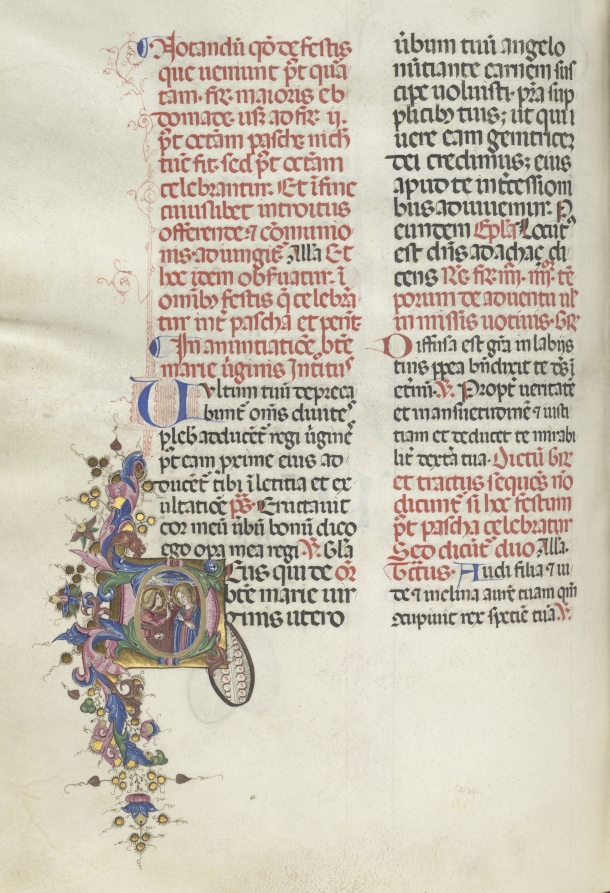 Notandũ qđ de festis
que ueniunt p̃t qua
tam· fir̃· maioris eb
domade usq̃ ad fir̃· ij.
p̃t octam̃ pasche nich
tue fit· sed p̃t octam̃
celebrantur. Et ĩ fine
cuiuslibet introitus
offerende· ⁊ cõmunio
nis· adiungit̃ Alla Et
hoc idem obſuatur. ĩ
omnibꝫ festis q̃ celebrã
tur int̃ pascha et pent̃·
In anuntiatiõe· bt̃e
marie ũginis Introitus
Vultum tuũ depreca
bunt̃ om̃s diuite
pleb̃ adducẽt̃ regi ũgine
p̃t eam proxime eius ad
ducẽt̃ tibi ĩ letitia et ex
ultatiõe p̃s· Eructauit
cor meũ ũbũ bonũ dico
ego opa mea regi ℣· Gl̃a
Deus qui de or̃
bt̃e marie uir
ginis utero
ũbum tuũ angelo
nũtiante carnem sus
cipe uoluisti· pr̃a sup
plicibꝫ tuis; ut qui
uere eam genitricem
dei credimus; eius
apud te int̃cessioni
bus adiuuemur· P
eundem Ep̃la Locut̃
est dñs ad achaz di
cens Re· fir̃· iiij· iiij· tẽ
porum de aduentu ul̃
in missis uotiuis· Gr̃
Diffusa est gr̃a in labijs
tuis ppea bñdixit te ds̃ ĩ
et̃nũ· ℣· Propt̃ ueritatẽ
et mansuetudinẽ ⁊ iusti
tiam et deducet te mirabi
lit̃ dext̃a tua· Dictũ Gr̃
et tractus sequẽs nõ
dicunt̃ si hoc festum
p̃t pascha celebratur
Sed dicũt̃ duo Alla·
Tc̃tus· Audi filia ⁊ ui
de ⁊ inclina aurẽ tuam qm̃
concupiuit rex speciẽ tuã ℣·